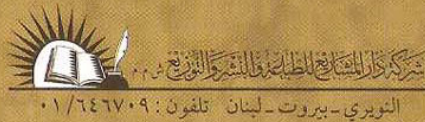 شركة دار المشاريع للطباعة والنشر والتوزيع ش.م.م
النويري - بيروت - لبنان تلفون : ٠١/٦٤٦٧٠٩